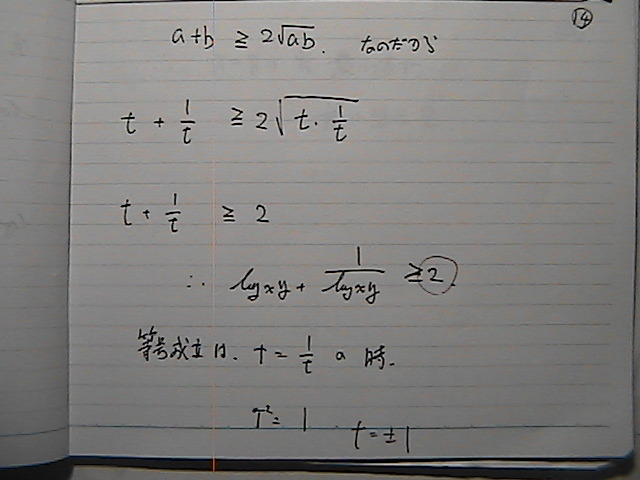 ⑭
a+b ≧ 2√ab. なのだから
t + 1/t ≧ 2√(t・1/t)
t + 1/t ≧ 2
∴ log x y + 1/(log x y) ≧ 2
等号成立は、t = 1/t の 時.
T² = 1 t = ±1